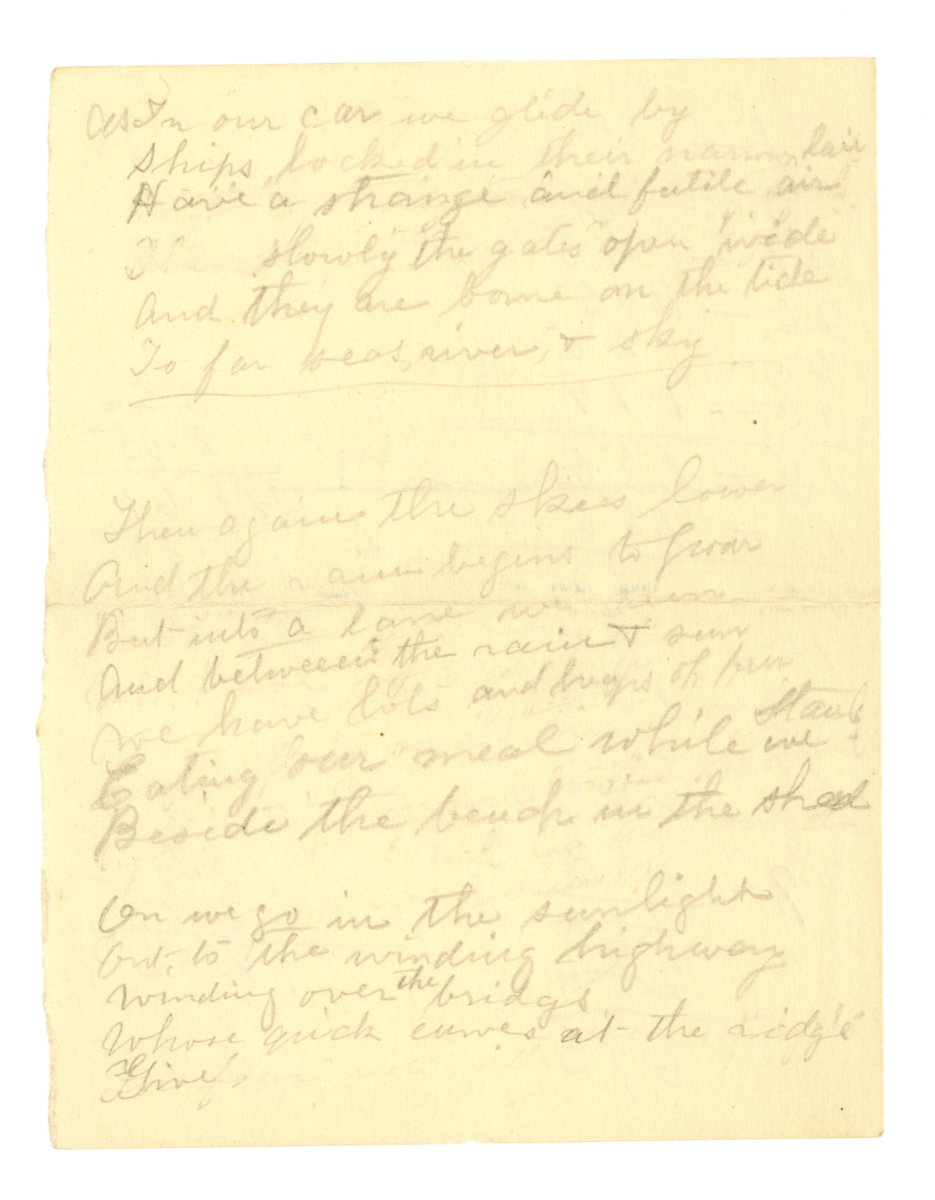 As In our car we glide by
Ships, locked in their narrow lair
Have a strange and futile air
slowly the gates open wide
And they are borne on the tide
To far seas, river, & sky
Then again the skies lower
And the rain begins to pour
But into a lane we run
And between the rain & sun
We have lots and heaps of fun
Eating our meal while we stand
Beside the bench in the shed
On we go in the sunlight
Out, to the winding highway
Winding over the bridge
Whose quick curves at the ridge
Give